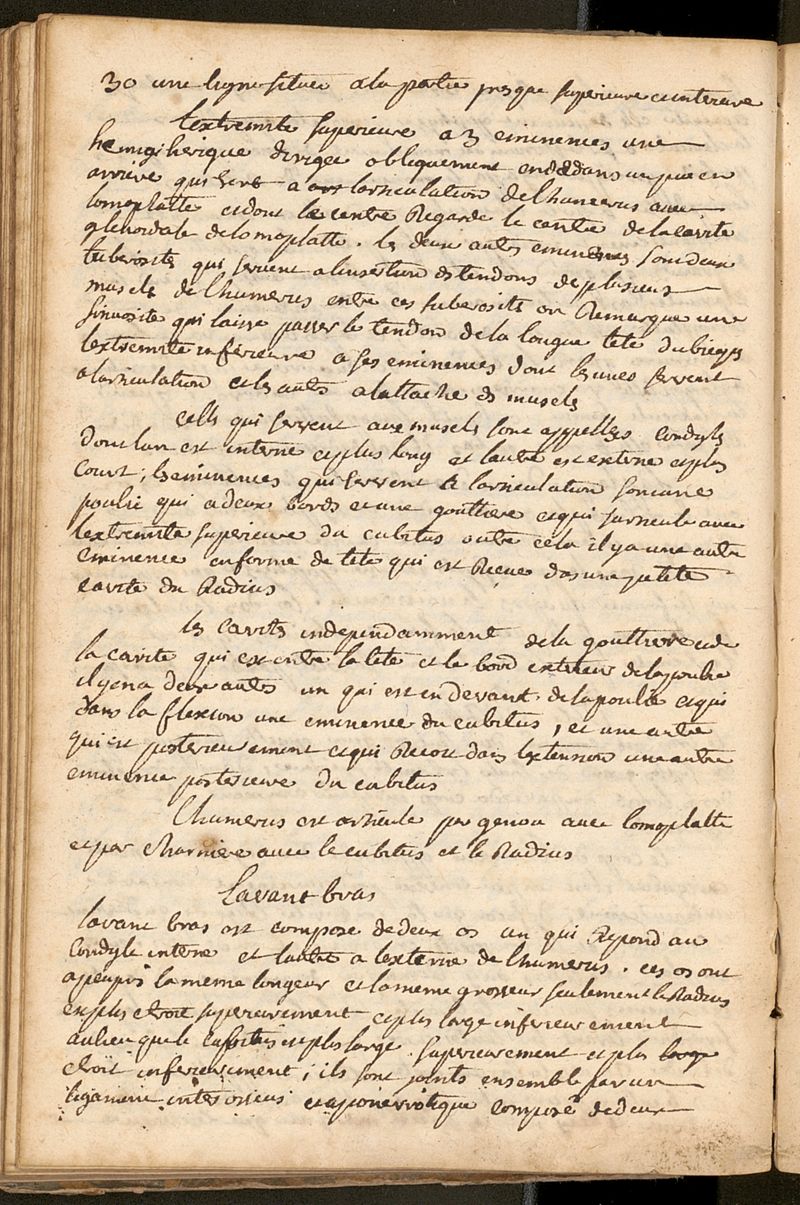 30 une ligne situee a la partie presque superieure eninterieure
lextremite superieure a 3 eminences une
hemispherique dirigée obliquement endedans unpeu en
arriere qui sert a larticulation delhumerus avec
lomoplatte et dont le centre Regarde le centre delacavite
glenoidale delomoplatte. les deux autres eminences sont deux
tuberosites qui servent alinsertion des tendons deplusieurs
muscles delhumerus entre ces tuberosites on Remarque une
sinuosite qui laisse passer le tendon dela longue tete dubiceps
lextremite inferieure a ses eminences dont lesunes servent
alarticulation et les autres alattache des muscles
celles qui servent aux muscles sont appellees condyles
dont lun est interne etplus long et lautre est externe etplus
court; les eminences qui servent a larticulation sont une
poulie qui a deux bords et une gouttiere etqui sarticule avec
lextremite superieure du cubitus outre cela il ya une autre
eminence enforme de tete qui est Reçue dans une petite
cavite du Radius
les cavites independamment dela gouttiere et de
la cavite qui est entre la tete et le bord exterieur delapoulie
ilyena deux autres un qui est en devant delapoulie etqui
dans la flexion une eminence du cubitus, et une autre
qui est posterieurement etqui Recoit dans lextension uneautre
eminence posterieure du cubitus
lhumerus est articulé par genou avec lomoplatte
etpar charniere avec le cubitus et le Radius
Lavant bras
lavant bras est composé dedeux os un qui Repond au
condyle interne et lautre a lexterne de lhumerus. ces os ont
apeuprès la meme longeur et la meme grosseur seulement le Radius
estplus etroit superieurement etplus large inferieurement
aulieu que le cubitus estplus large superieurement etplus
etroit inferieurement; ils sont joints ensemble par un
ligament interosseus et aponevrotique composé dedeux